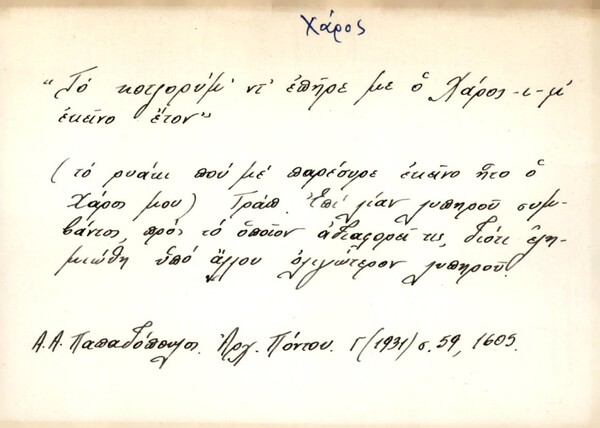 Χάρος
“Τό κοτζορύμ' ντ' ἐπῆρε με ὁ Χάρος-ι-μ'
ἐκεῖνο ἔτον”
(τό ρυάκι πού μέ παρέσυρε ἐκεῖνο ἦτο ὁ
Χάρος μου) Τραπ. Ἐπί λίαν λυπηροῦ συμ-
βάντος, πρός τό ὁποῖον ἀδιαφορεῖ τις, διότι ἐζη-
μιώθη ὑπό ἄλλου ὀλιγώτερον λυπηροῦ.
Α.Α. Παπαδόπουλος. Ἀρχ. Πόντου. Γ (1931) σ. 59, 1605.